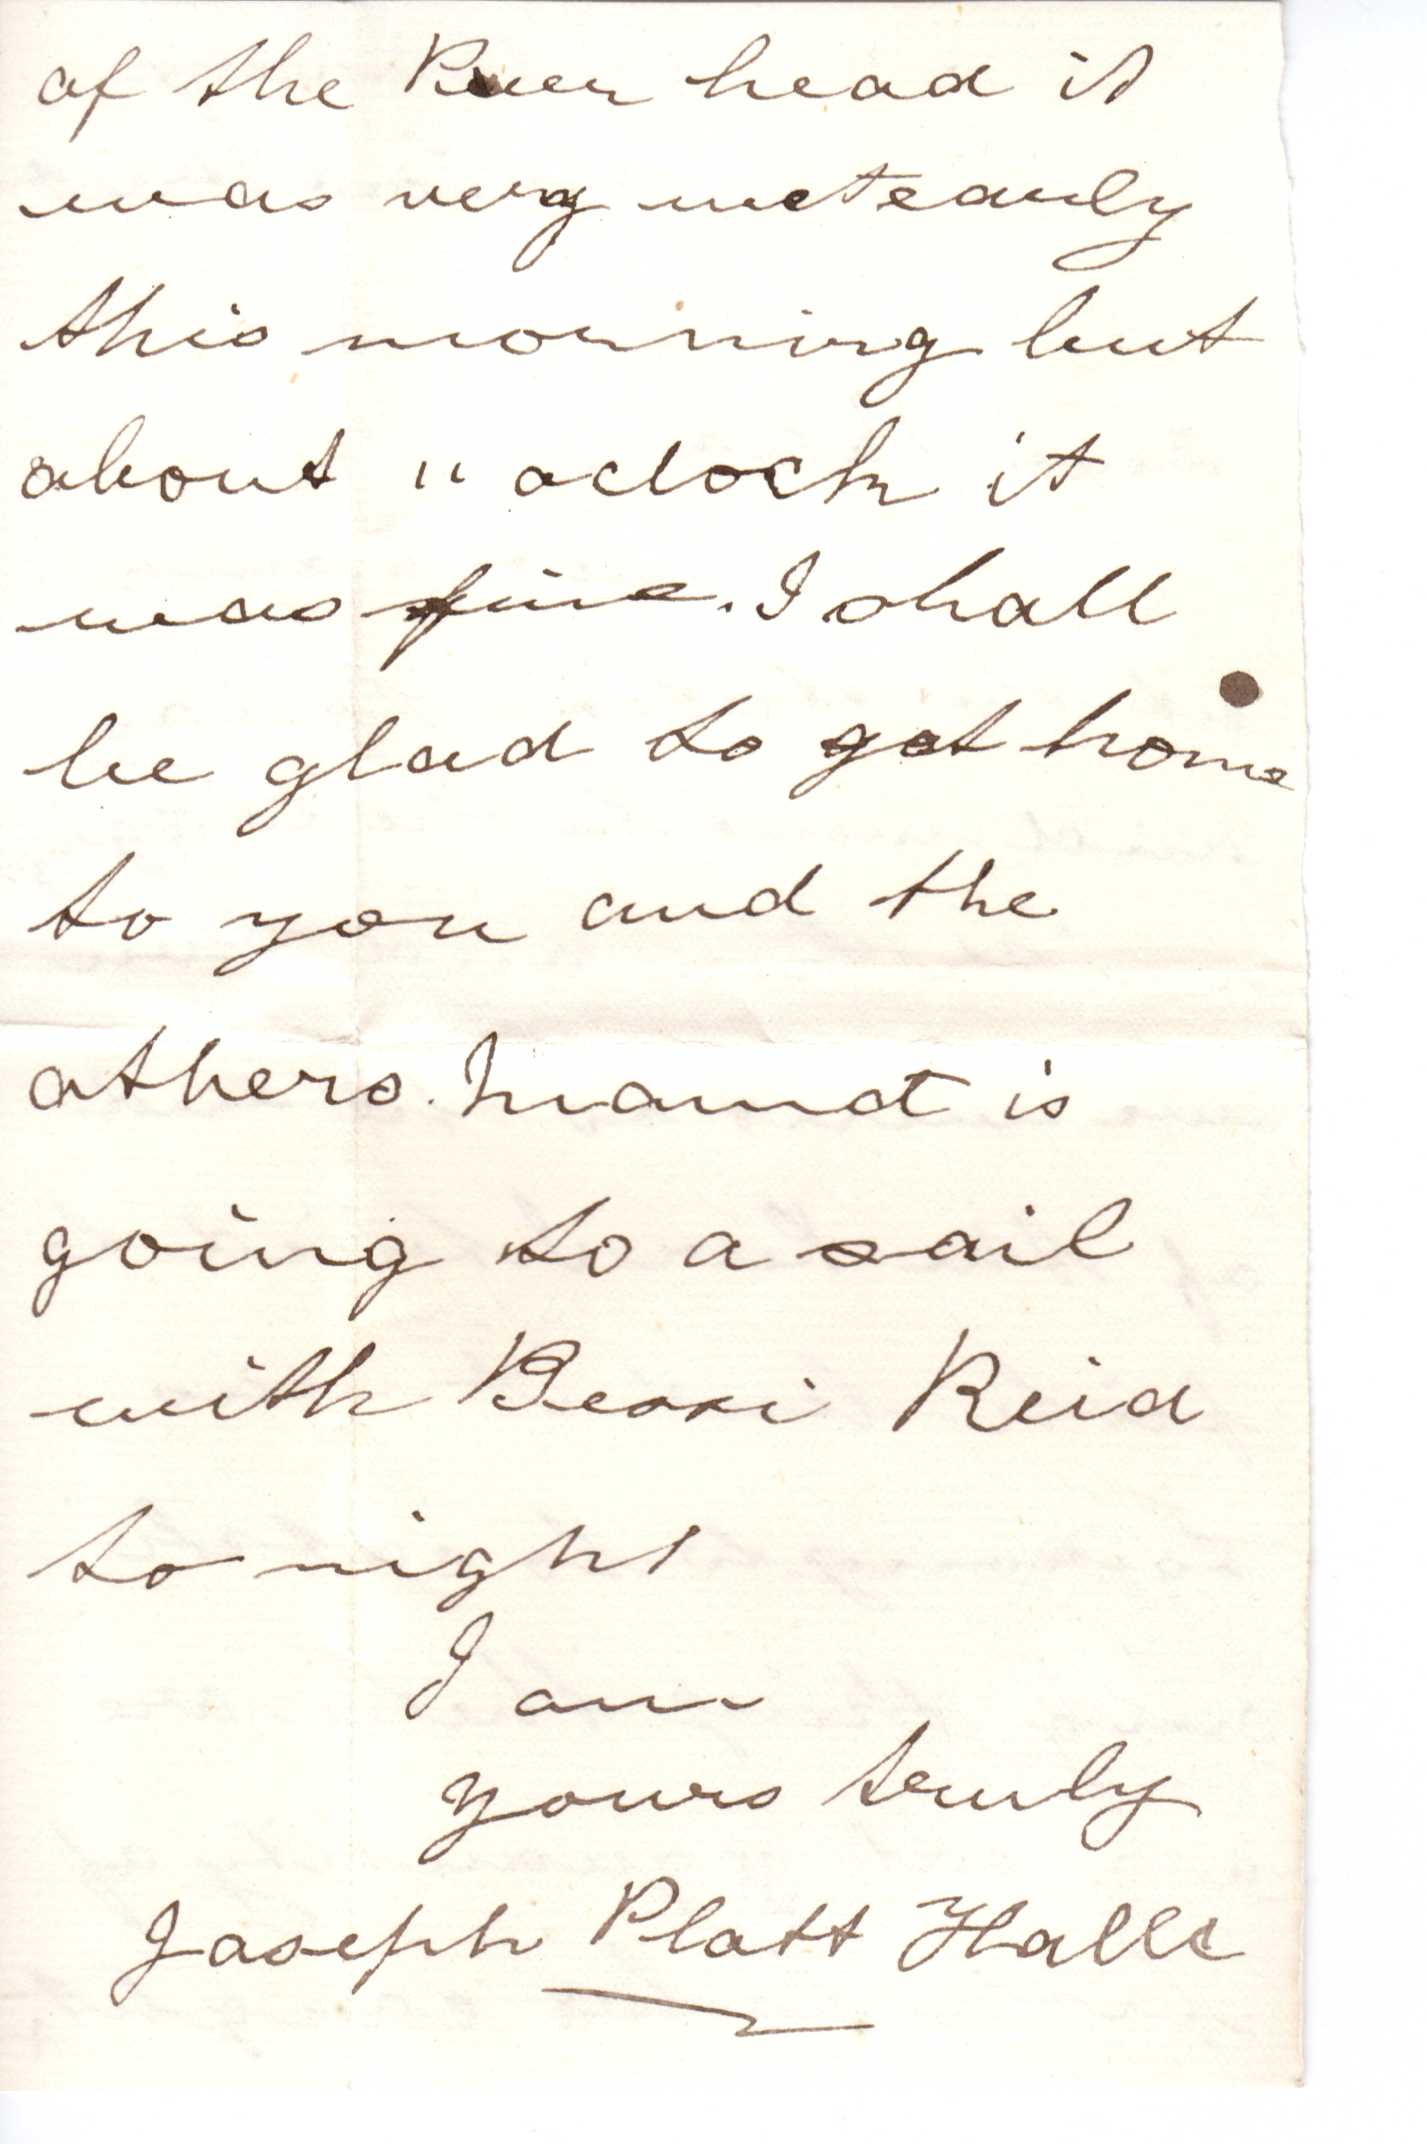 of the Pier head it
was very wet early
this morning but
about 11 oclock it
was fine. I shall
be glad to get home
to you and the
others. is
going to a sail
with Bessi Reid
to night
I am
yours truly
Joseph Platt Hall